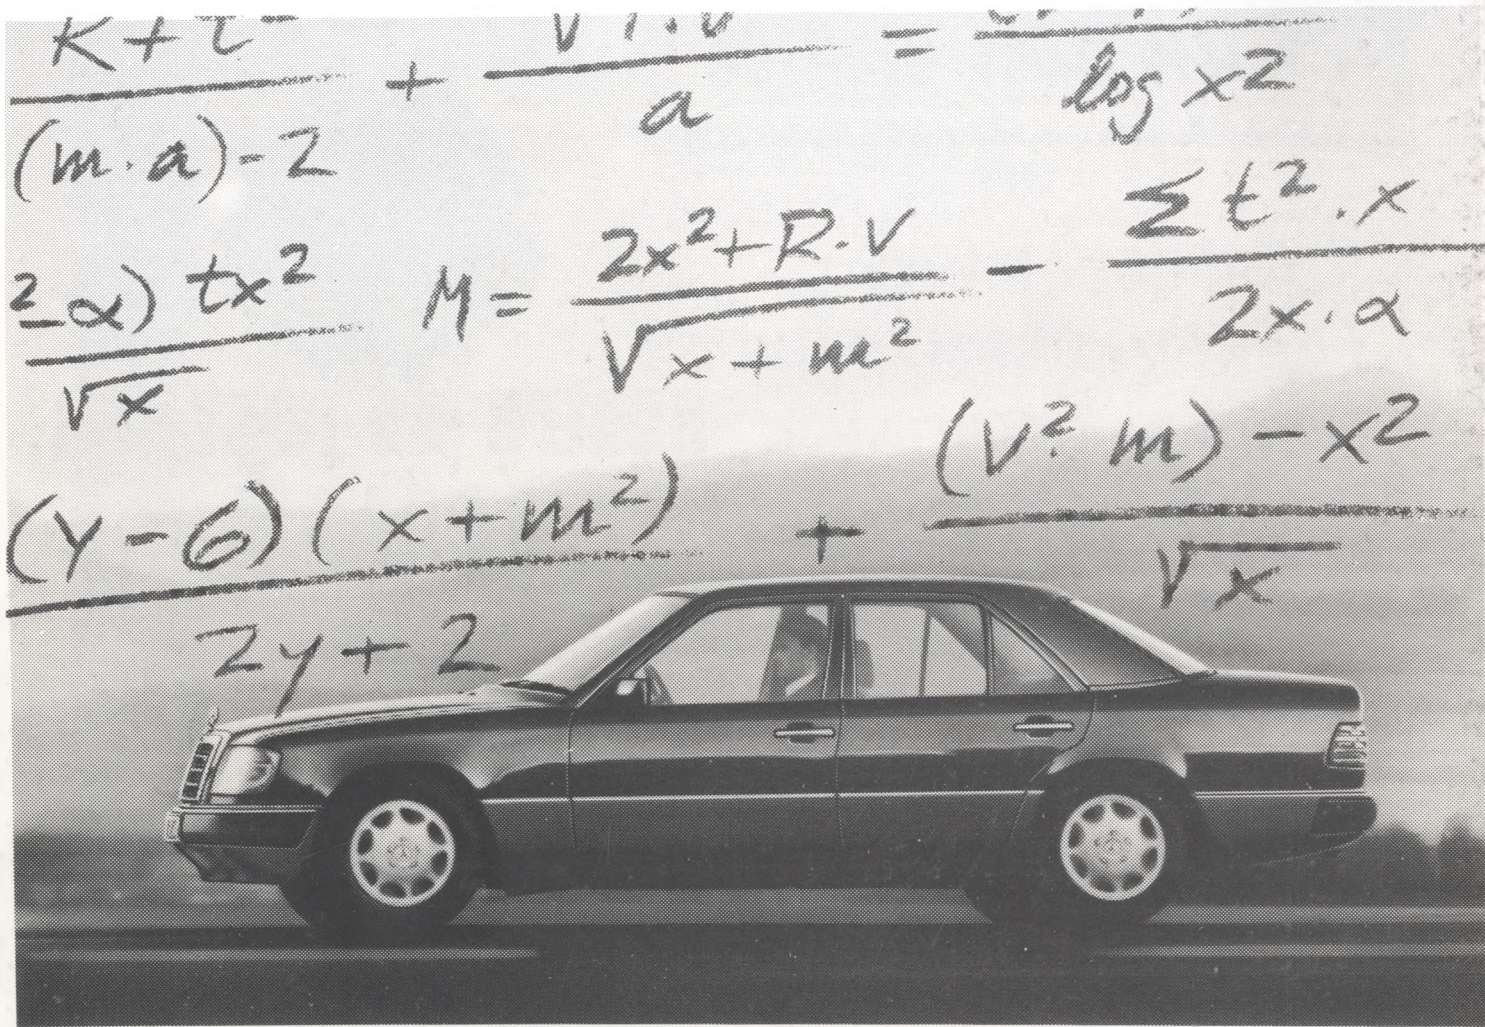 R+t² / (m·a)-2 + √ / a = / log x²
²-α) tx² / √x
M = 2x²+R·V / √x+m² - Σt²·x / 2x·α
(y-6)(x+m²) / 2y+2 + (v²·m)-x² / √x